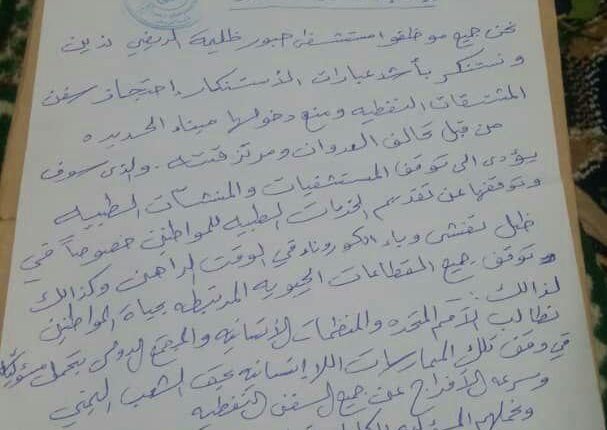 نحن جميع موظفو مستشفى جبور ظليمه الريفي ندين
ونستنكر بأشد عبارات الاستنكار احتجاز سفن
المشتقات النفطيه ومنع دخولها ميناء الحديده
من قبل تحالف العدوان ومرتزقته . والذي سوف
يؤدى الى توقف المستشفيات والمنشأت الطبيه
وتوقفها عن تقديم الخدمات الطبيه للمواطنين خصوصاً في
ظل تفشي وباء الكورونا في الوقت الراهن وكذالك
توقف جميع القطاعات الحيويه المرتبطه بحياة المواطنين
لذالك :
نطالب الأمم المتحده والمنظمات الأنسانيه والمجتمع الدولي بتحمل مسؤوليتها
في وقف تلك الممارسات اللا إنسانيه بحق الشعب اليمني
وسرعه الأفراج عن جميع السفن النفطيه
ونحملهم